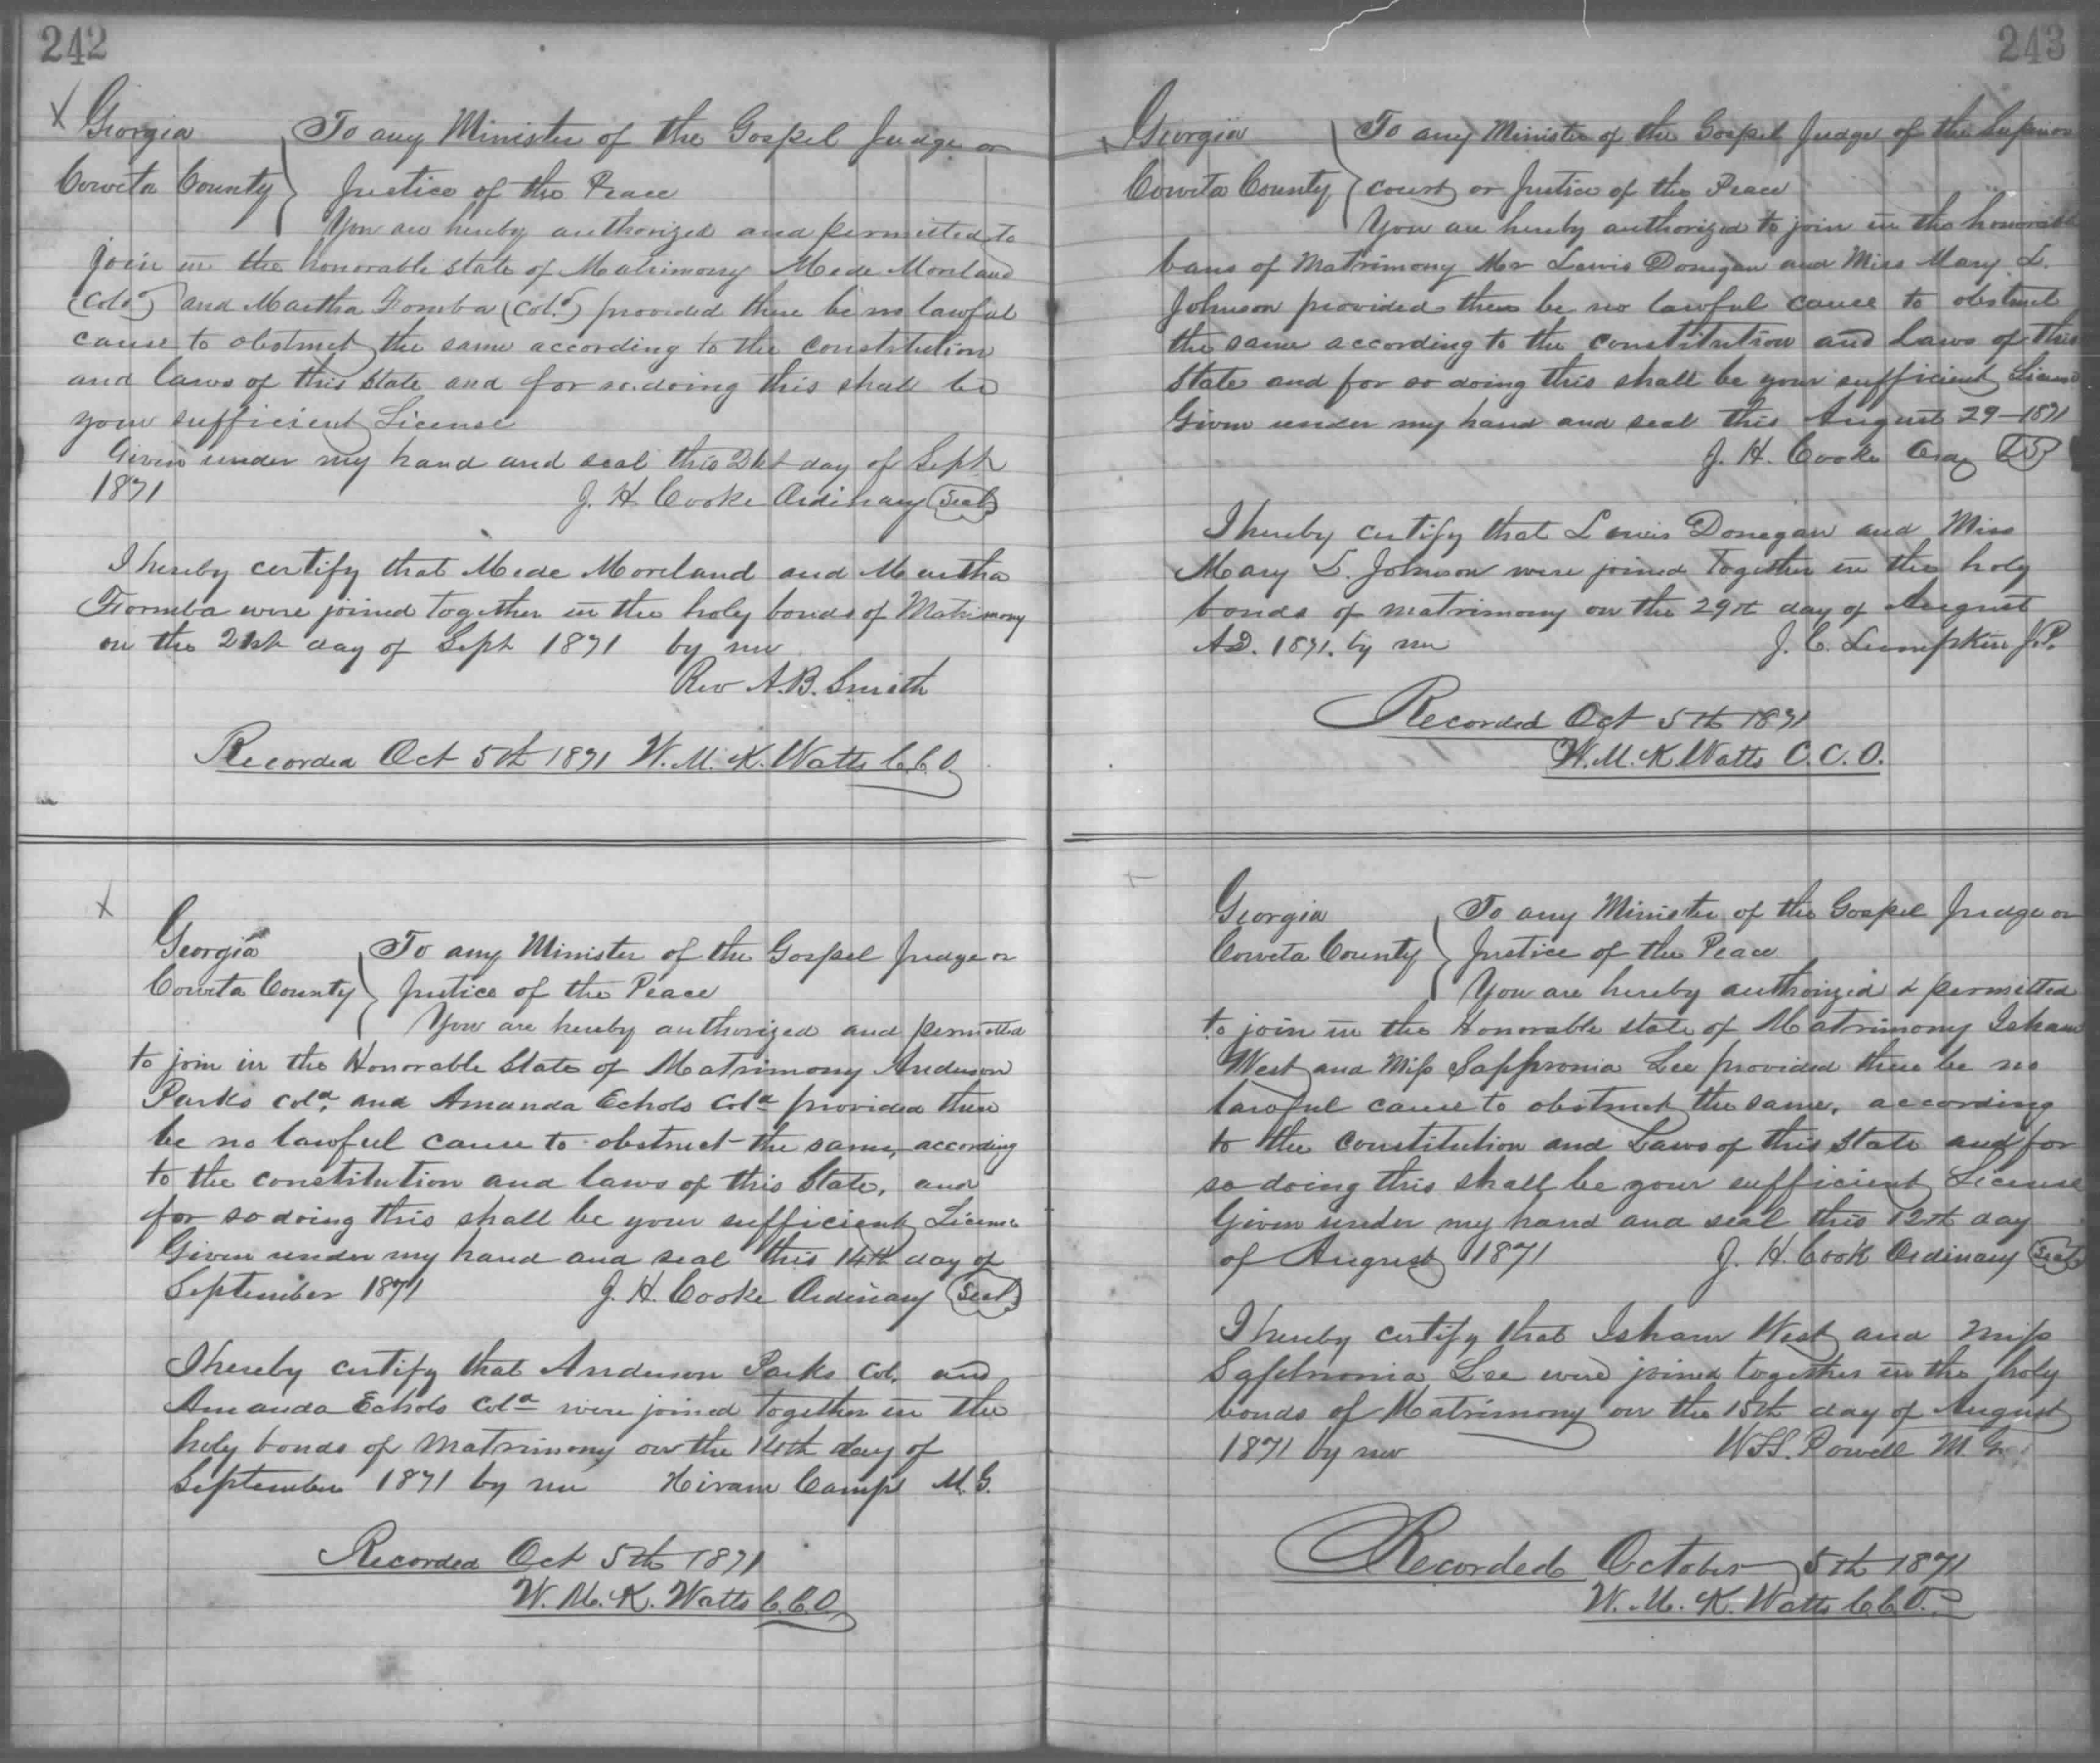 242
X Georgia To any Minister of the Gospel Judge or
Coweta County Justice of the Peace
You are hereby authorized and permitted to
join in the honorable state of Matrimony Mede Moreland
(Cold) and Martha Fomba (Cold) provided there be no lawful
cause to obstruct the same according to the constitution
and laws of this State and for so doing this shall be
your sufficient License
Given under my hand and seal this 21st day of Sept
1871 J. H. Cooke Ordinary Seal
I hereby certify that Mede Moreland and Martha
Fomba were joined together in the holy bonds of Matrimony
on the 21st day of Sept 1871 by me
Rev A. B. Smith
Recorded Oct 5th 1871 W. M. K. Watts C.C.O.
X
Georgia To any Minister of the Gospel Judge or
Coweta County Justice of the Peace
You are hereby authorized and permitted
to join in the Honorable State of Matrimony Anderson
Parks Cold. and Amanda Echols Cold provided there
be no lawful cause to obstruct the same, according
to the constitution and laws of this State, and
for so doing this shall be your sufficient License
Given under my hand and seal this 14th day of
September 1871 J. H. Cooke Ordinary Seal
I hereby certify that Anderson Parks Col. and
Amanda Echols Cold were joined together in the
holy bonds of Matrimony on the 14th day of
September 1871 by me Hiram Camp M. G.
Recorded Oct 5th 1871
W. M. K. Watts C.C.O.
243
Georgia To any Minister of the Gospel Judge of the Superior
Coweta County court or Justice of the Peace
You are hereby authorized to join in the honorable
bans of Matrimony Mr Lewis Donegan and Miss Mary L.
Johnson provided there be no lawful cause to obstruct
the same according to the constitution and Laws of this
State and for so doing this shall be your sufficient License
Given under my hand and seal this August 29-1871
J. H. Cooke Ordy LS
I hereby certify that Lewis Donegan and Miss
Mary L. Johnson were joined together in the holy
bonds of matrimony on the 29th day of August
A.D. 1871. by me J. C. Lumpkin J.P.
Recorded Oct 5th 1871
W. M. K. Watts C.C.O.
Georgia To any Minister of the Gospel Judge or
Coweta County Justice of the Peace
You are hereby authorized & permitted
to join in the Honorable state of Matrimony Isham
West and Miss Sapphronia Lee provided there be no
lawful cause to obstruct the same, according
to the constitution and Laws of this State and for
so doing this shall be your sufficient License
Given under my hand and seal this 12th day
of August 1871 J. H. Cook Ordinary Seal
I hereby certify that Isham West and Miss
Saphronia Lee were joined together in the holy
bonds of Matrimony on the 15th day of August
1871 by me Powell M. G.
Recorded October 5th 1871
W. M. K. Watts C.C.O.